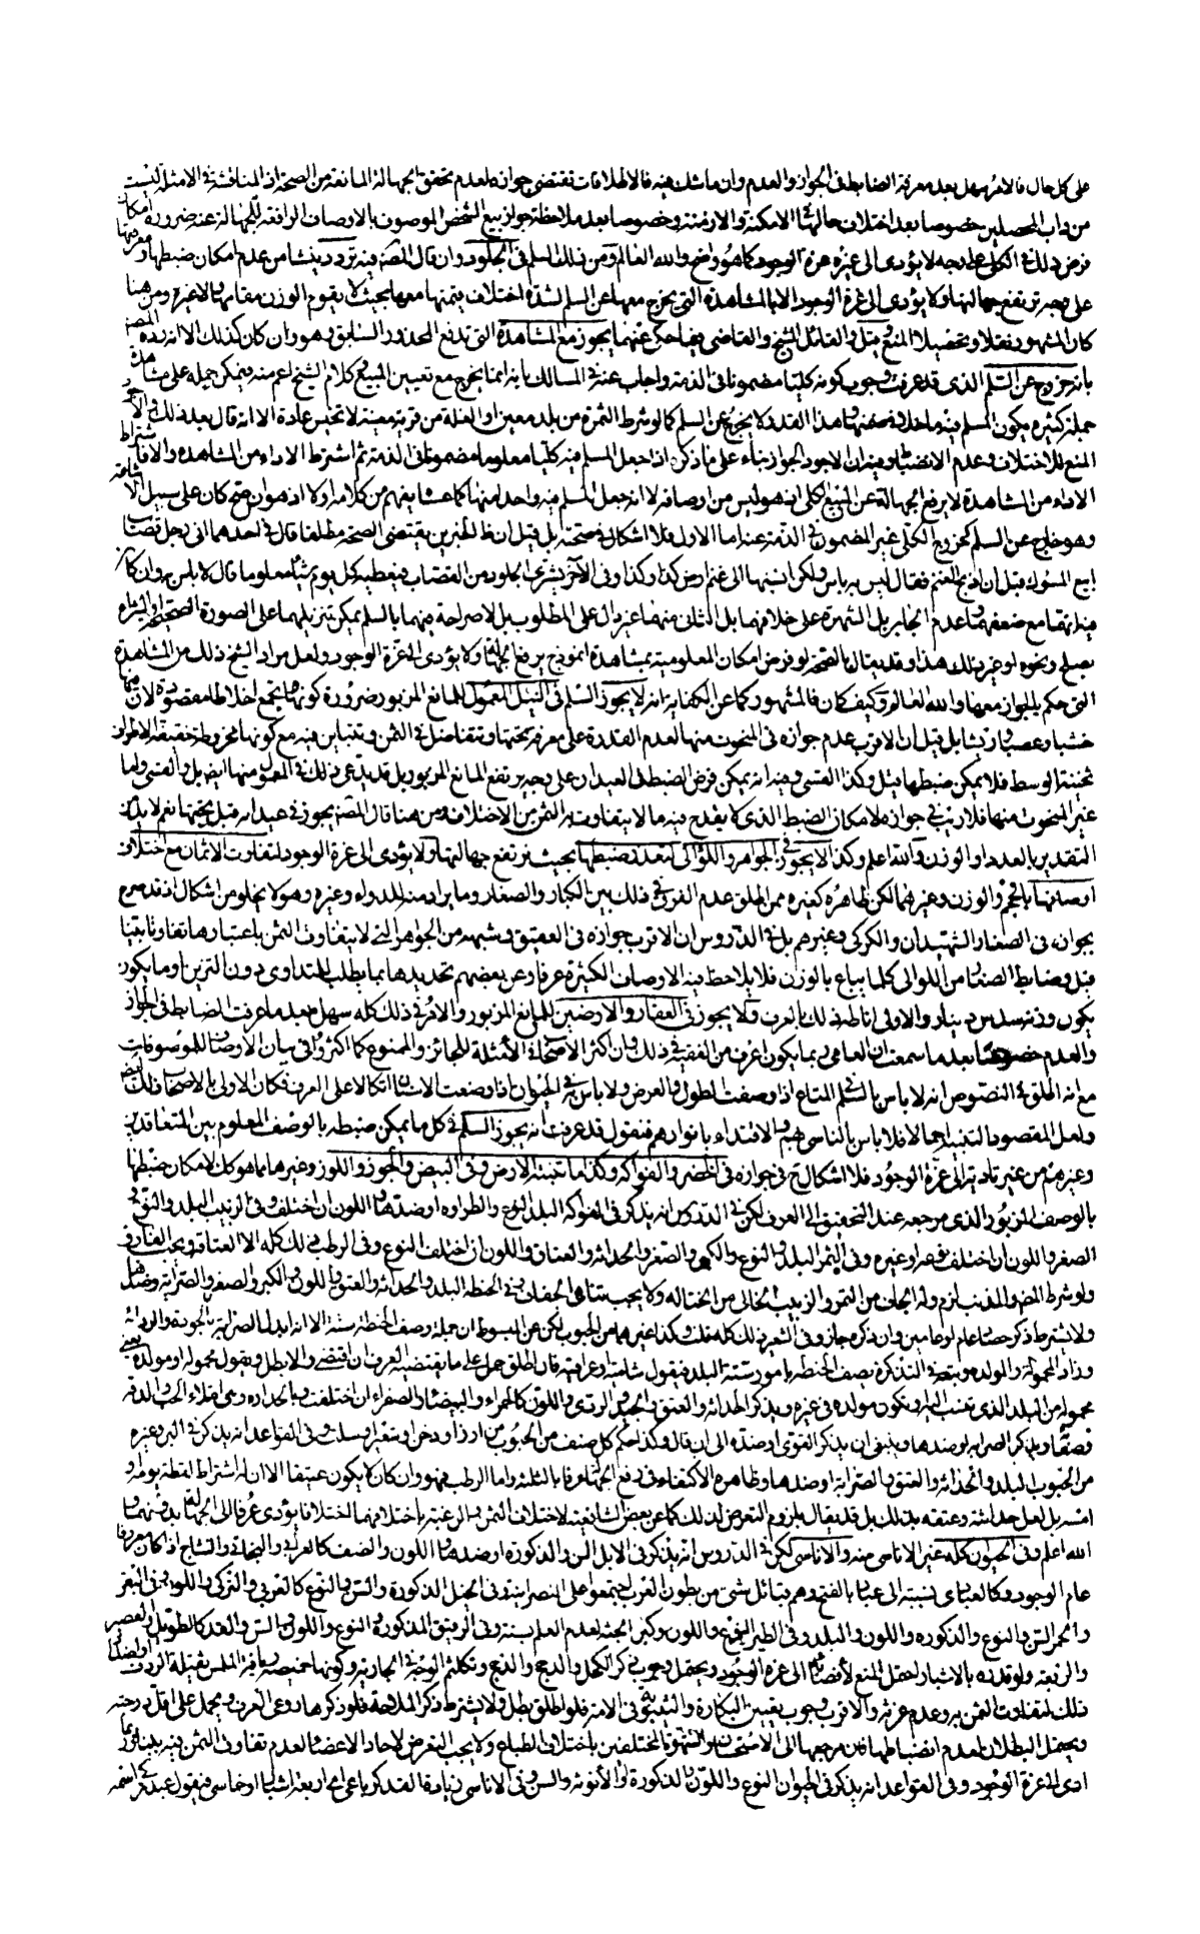 على كل حال فالامر سهل بعد معرفة الضابط في الجواز والعدم وان ما شك فيه فالاطلاقات تقتضي جوازه لعدم تحقق الجهالة المانعة من الصحة اذ المناقشة في الامثلة ليست
من داب المحصلين خصوصا بعد اختلاف حالها في الامكنة والازمنة وخصوصا بعد ملاحظة جواز بيع الشخص الموصوف بالاوصاف الرافعة للجهالة عنه ضرورة امكان
فرض ذلك في الكلي على وجه لا يؤدى الى غيره عزة الوجود كما هو واضح والله العالم ومن ذلك السلم في الجلود وان قال المص فيه تردد ينشا من عدم امكان ضبطها ومعرفتها
على وجه ترتفع جهالتها ولا يؤدى الى عزة الوجود الا بالمشاهدة التي يخرج معها عن السلم لشدة اختلاف قيمتها معها بحيث لا يقوم الوزن مقامها ولا غيره ومن هنا
كان المشهور نقلا وتحصيلا المنع وقيل والقائل الشيخ والقاضي فيما حكى عنهما يجوز مع المشاهدة التي تدفع المحذور السابق وهو وان كان كذلك الا انه رده المص
بانه خروج عن السلم الذى قد عرفت وجوب كونه كليا مضمونا في الذمة واجاب عنه في المسالك بانه انما يخرج مع تعيين المبيع وكلام الشيخ اعم منه فيمكن حمله على مشاهدة
جملة كثيرة يكون المسلم فيه داخلا في ضمنها وهذا القدر لا يخرج عن السلم كما لو شرط الثمرة من بلد معين او الغلة من قرية معينة لا تخيس عادة الا انه قال بعد ذلك والاجود
المنع للاختلاف وعدم الانضباط وفيه ان الاجود الجواز بناء على ما ذكره اذا جعل المسلم فيه كليا معلوما مضمونا في الذمة ثم اشترط الاداء من المشاهدة والا فاشتراط
الاداء من المشاهدة لا يرفع الجهالة عن المبيع الكلي اذ هو ليس من اوصافه لا انه جعل المسلم فيه واحدا منها كما عساه يفهم من كلامه اولا اذ هو ان صح كان على سبيل الاشاعة
وهو خارج عن السلم كخروج الكلي غير المضمون في الذمة عنه اما الاول فلا اشكال في صحته بل قيل ان ظ الخبرين يقتضى الصحة مطلقا قال في احدهما اني رجل قصاب
ابيع المسوك قبل ان اذبح الغنم فقال ليس به باس ولكن انسبها الى غنم ارض كذا وكذا وفي الآخر يشترى الجلود من القصاب فيعطيه كل يوم شيئا معلوما قال لا باس به وان كان
فيه انهما مع ضعفهما وعدم الجابر بل الشهرة على خلافهما بل الثاني منهما غير دال على المطلوب بل لا صراحة فيهما بالسلم يمكن تنزيلهما على الصورة الصحيحة او الشراء
بصلح ونحوه او غير ذلك هذا وقد يقال بالصحة لو فرض امكان المعلومية بمشاهدة انموذج يرفع الجهالة ولا يؤدى الى عزة الوجود ولعل مراد الشيخ ذلك من المشاهدة
التي حكم بالجواز معها والله العالم وكيف كان فالمشهور كما عن الكفاية انه لا يجوز السلم في النبل المعمول للمانع المزبور ضرورة كونها مما يجتمع اخلاطا مقصودة لان فيها
خشبا وعصبا وريشا بل قيل ان الاقرب عدم جوازه في المنحوت منها لعدم القدرة على معرفة نحتها وتتفاضل في الثمن وتتباين فيه مع كونها مخروطة خفيفة الاطراف
ثخينة الوسط فلا يمكن ضبطها قيل وكذا القسى وفيه انه يمكن فرض الضبط للعيدان على وجه يرتفع المانع المزبور بل قد يدعى ذلك في المعمول منها ايضا بل والقسى واما
غير المنحوت منها فلا ريب في جوازه لامكان الضبط الذى لا يقدح فيه ما لا يتفاوت به الثمن من الاختلاف ومن هنا قال المص يجوز في عيدانه قبل نحتها نعم لا بد من
التقدير بالعدد او الوزن والله اعلم وكذا لا يجوز في الجواهر واللؤالى لتعذر ضبطها بحيث ترتفع جهالتها ولا يؤدى الى عزة الوجود لتفاوت الاثمان مع اختلاف
اوصافها بالحجم والوزن وغيرهما لكن ظاهره كغيره ممن اطلق عدم الفرق في ذلك بين الكبار والصغار وما يراد منه للدواء وغيره وهو لا يخلو من اشكال اذ قد صرح
بجوازه في الصغار الشهيدان والكركي وغيرهم بل في الدروس ان الاقرب جوازه في العقيق وشبهه من الجواهر التي لا يتفاوت الثمن باعتبارها تفاوتا بينا
قيل وضابط الصغار من اللؤالى كلما يباع بالوزن فلا يلاحظ فيه الاوصاف الكثيرة عرفا وعن بعضهم تحديدها بما يطلب للتداوى دون التزين او ما يكون
يكون وزنه سدس دينار والاولى اناطة ذلك بالعرف ولا يجوز في العقار والارضين للمانع المزبور والامر في ذلك كله سهل بعد ما عرفت الضابط في الجواز
والعدم خصوصا بعد ما سمعت ان العامي ربما يكون اعرف من الفقيه في ذلك وان اكثر الاصحاب في الأمثلة للجائز والممنوع كما اكثروا في بيان الاوصاف للموصوفات
مع انه اطلق في النصوص انه لا باس بالسلم في المتاع اذا وصفت الطول والعرض ولا باس به في الحيوان اذا وصفت الاسنان اتكالا على العرف فكان الاولى بالاصحاب ذلك ايضا
ولعل المقصود التنبيه اجمالا فلا باس بالتاسى بهم والاقتداء بانوارهم فنقول قد عرفت انه يجوز السلم في كل ما يمكن ضبطه بالوصف المعلوم بين المتعاقدين
وغيرهم من غير تادية الى عزة الوجود فلا اشكال ح في جوازه في الخضر والفواكه وكذا ما تنبته الارض وفي البيض والجوز واللوز وغيرها مما هو كك لامكان ضبطها
بالوصف المزبور الذى مرجعه عند التحقيق الى العرف لكن في الدروس انه يذكر في الفواكه البلد والنوع والطراوة او ضدها واللون ان اختلف وفي الزبيب البلد والنوع و
الصغر واللون ان اختلف نوعه او غيره وفي التمر البلد والنوع والكبر والصغر والحداثة والعتاق واللون ان اختلف النوع وفي الرطب ذلك كله الا العتاقة ويجب التعارف
ولا يشترط ذكر حصاد عام او عامين وان ذكره جاز وفي الشعير ذلك كله وكذا غيرهما من الحبوب لكن عن المبسوط ان جملة وصف الحنطة ستة الا انه ابدل الصرابة بالجودة والرداءة
محمولة من البلد الذى تنسب اليه او تكون مولدة في غيره ويذكر الحداثة والعتق والجيد او الردى واللون كالحمراء والبيضاء والصفراء ان اختلفت
من الحبوب البلد والحداثة والعتق والصرابة او ضدها وظاهره الاكتفاء في رفع الجهالة عرفا بالثلثة واما الرطب فهو وان كان لا يكون عتيقا الا ان له اشتراط لقطة يومه او
امسه بل لعل حداثته وعتقه بذلك بل قد يقال بلزوم التعرض لذلك كما عن بعض الشافعية لاختلاف الثمن والرغبة باختلافهما اختلافا يؤدى عرفا الى الجهالة بدونهما و
الله اعلم وفي الحيوان كله غير الاناسى منه والاناسى لكن في الدروس انه يذكر في الابل السن والذكورة او ضدها واللون والصنف كالعرابي والبخاتي والنتاج اذا كان معروفا
عام الوجود وكالعبادى نسبة الى عباد بالفتح وهم قبائل شتى من بطون العرب اجتمعوا على النصرانية وفي الخيل الذكورة والسن والنوع كالعربي والتركي واللون وفي البقر
والحمر السن والنوع والذكورة واللون والبلد وفي الطير النوع واللون وكبر الجثة لعدم العلم بسنه وفي الرقيق الذكورة والنوع واللون والسن والقد كالطويل والقصير
والربعة ولو قدره بالاشبار احتمل المنع لأفضائه الى عزة الوجود ويحتمل وجوب ذكر الكحل والدعج والزجج وتكلثم الوجه في الجارية وكونها خميصة ريانة الملمس ثقيلة الردف او اضداد
ذلك لتفاوت الثمن به وعدم عزته والاقرب وجوب تعيين البكارة والثيوبة في الامة فلو اطلق بطل ولا يشترط ذكر الملاحة فلو ذكرها روعى العرف ويحمل على اقل درجة
ويحتمل البطلان لعدم انضباطها فان مرجعها الى الاستحسان والشهوة المختلفين باختلاف الطباع ولا يجب التعرض لاحاد الاعضاء لعدم تفاوت الثمن فيه بينا وربما
ادى الى عزة الوجود وفي القواعد انه يذكر في الحيوان النوع واللون والذكورة والأنوثة والسن وفي الاناسى زيادة القد كرباعى اى اربعة اشبار او خماسى فيقول عبد